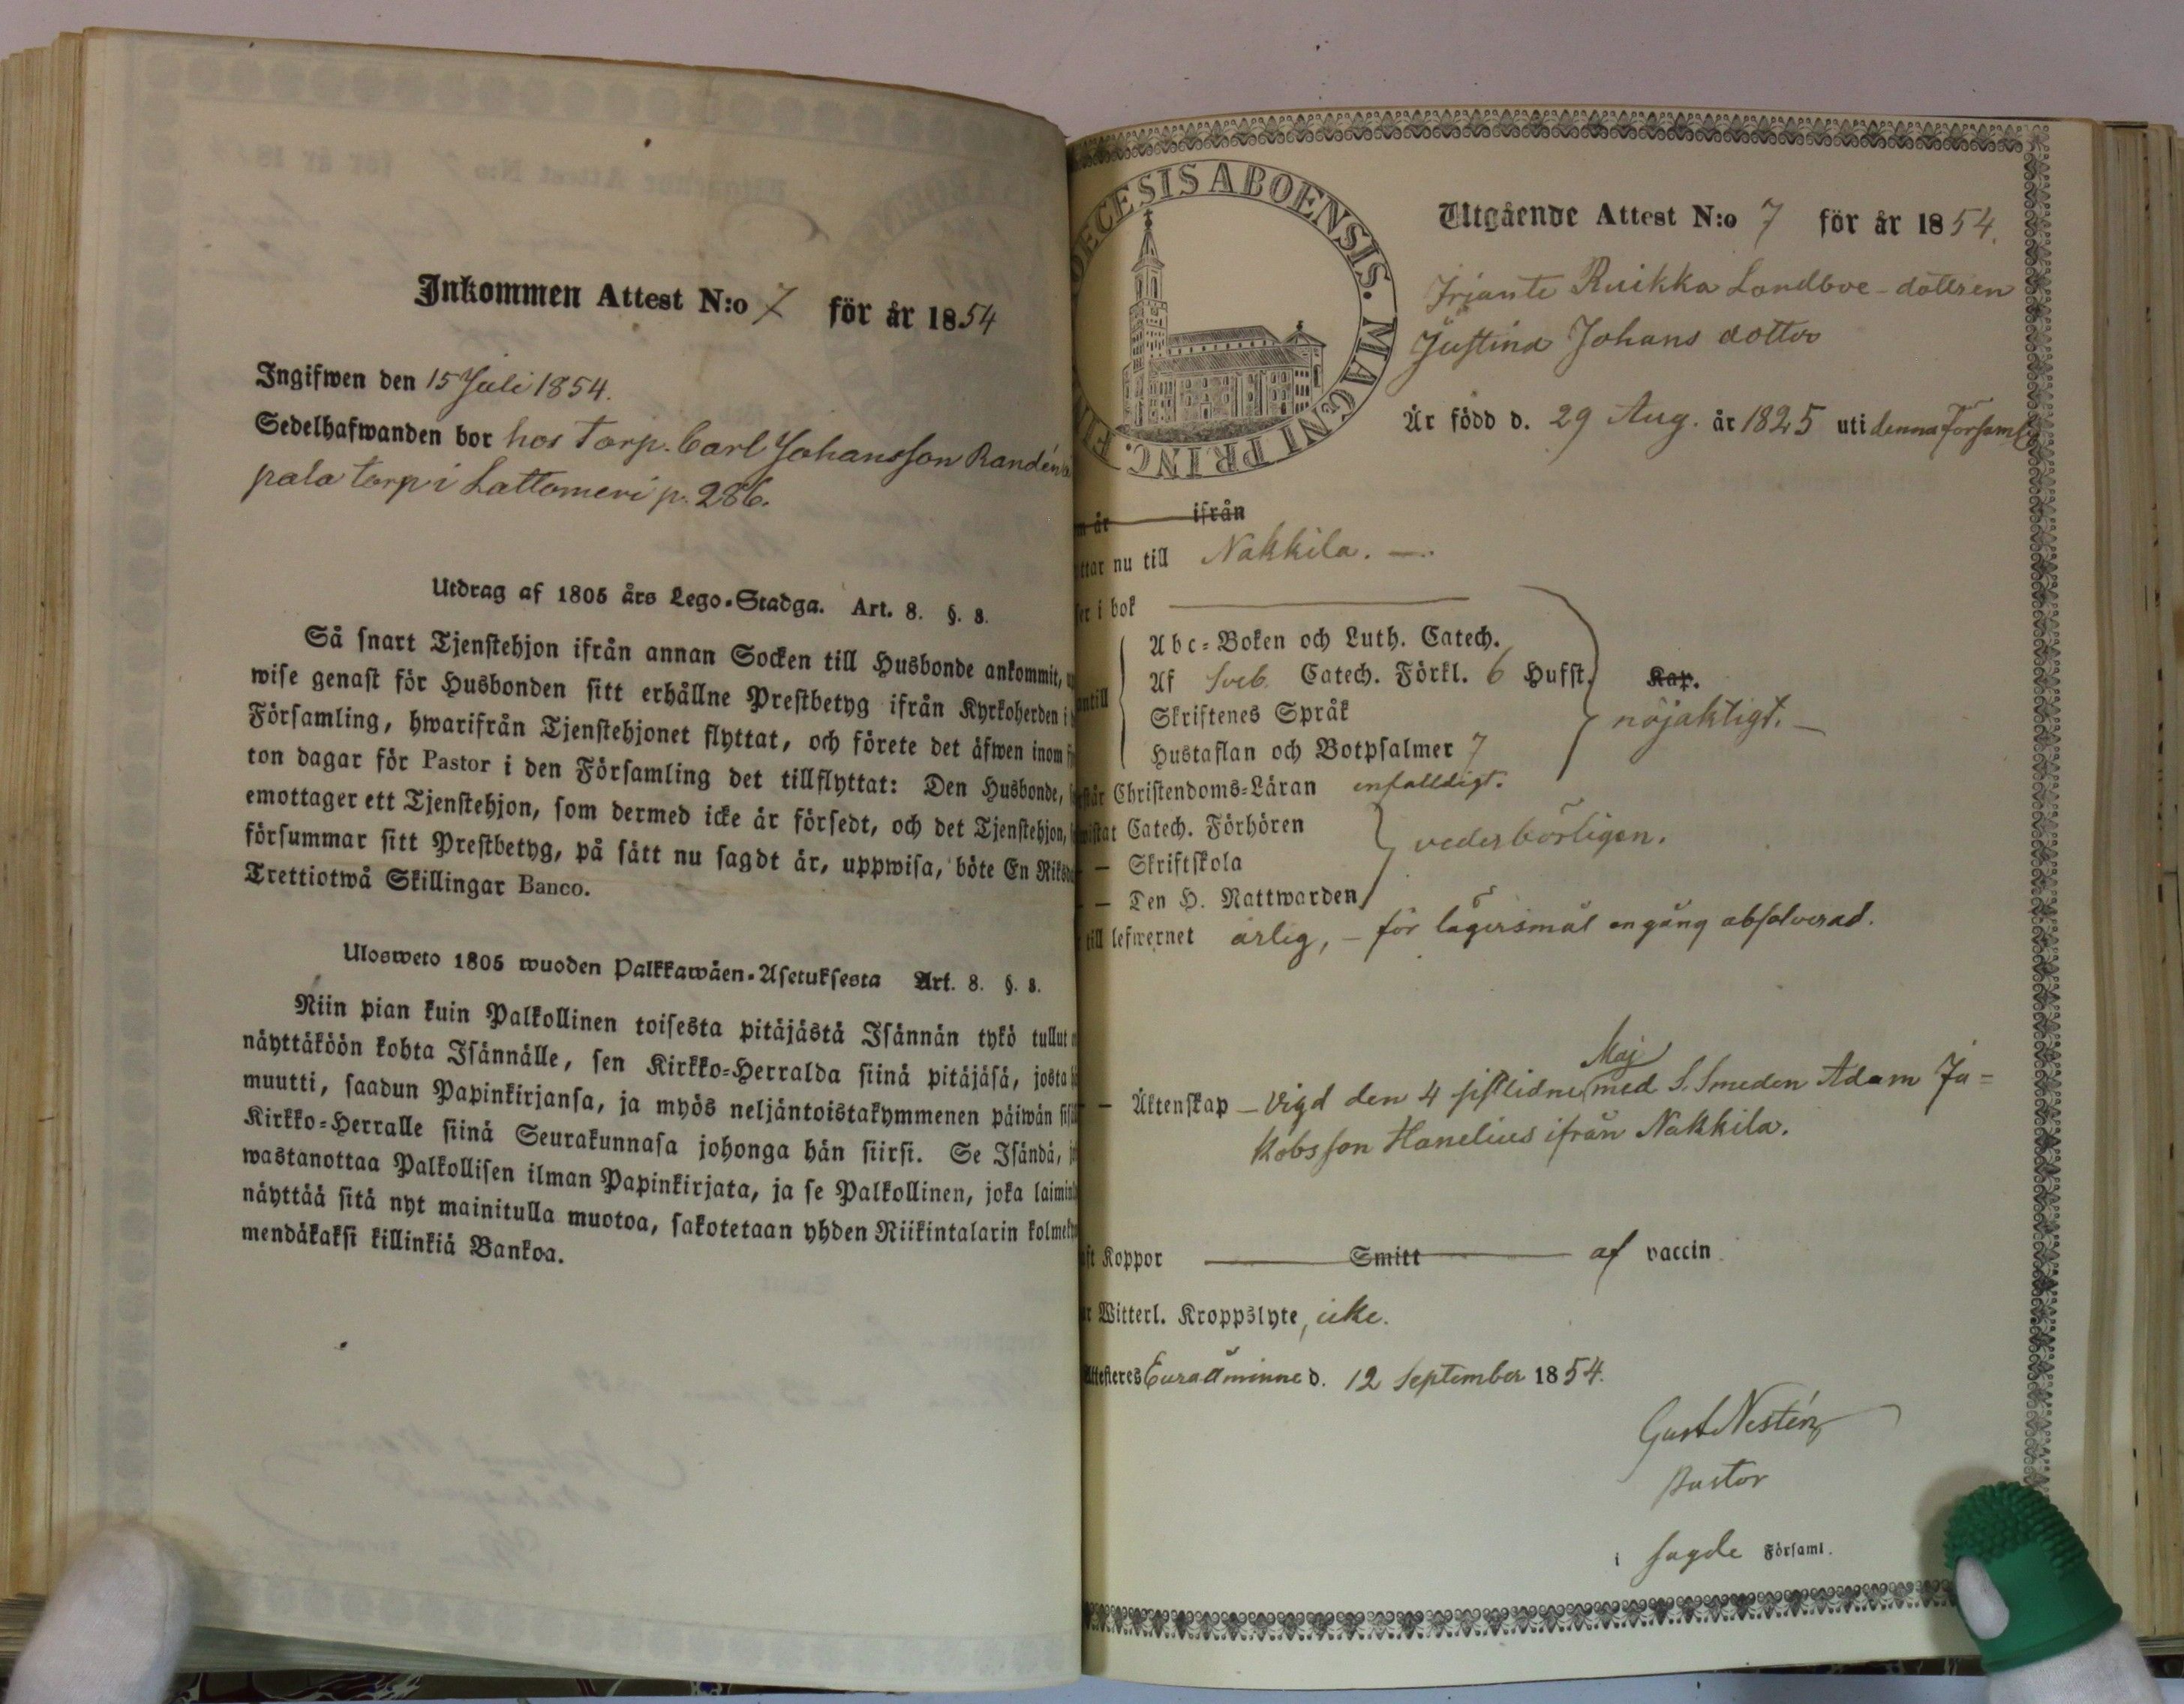 Inkommen Attest N:o 7 för år 1854
Ingifwen den 15 Juli 1854.
Sedelhafwanden bor hos Torp. Carl Johansson Randén
pala torp i Lattomeri p. 286.
Utdrag af 1805 års Lego-Stadga. Art. 8. §. 8.
Så snart Tjenstehjon ifrån annan Socken till Husbonde ankommit,
wise genast för Husbonden sitt erhållne Prestbetyg ifrån Kyrkoherden i
Församling, hwarifrån Tjenstehjonet flyttat, och förete det äfwen inom
ton dagar för Pastor i den Församling det tillflyttat: Den Husbonde,
emottager ett Tjenstehjon, som dermed icke är försedt, och det Tjenstehjon,
försummar sitt Prestbetyg, på sätt nu sagdt är, uppwisa, böte En Riksd
Trettiotwå Skillingar Banco.
Ulosweto 1805 wuoden Palkkawäen-Asetuksesta Art. 8. §. 8.
Niin pian kuin Palkollinen toisesta pitäjästä Isännän tykö tullut
näyttäköön kohta Isännälle, sen Kirkko-Herralda siinä pitäjäsä, josta
muutti, saadun Papinkirjansa, ja myös neljäntoistakymmenen päiwän sisä
Kirkko-Herralle siinä Seurakunnasa johonga hän siirsi. Se Isändä,
wastanottaa Palkollisen ilman Papinkirjata, ja se Palkollinen, joka laimin
näyttää sitä nyt mainitulla muotoa, sakotetaan yhden Riikintalarin kolmek
mendäkaksi killinkiä Bankoa.
ECESIS ABOENSIS. MAGNI PRINC. FI
Utgående Attest N:o 7 för år 1854.
Irjante Ruikka Landboe-dottren
Justina Johans dotter
Är född d. 29 Aug. år 1825 uti denna Församl
år ifrån
ttar nu till Nakkila.
er i bok
Abc-Boken och Luth. Catech.
Af Sveb. Catech. Förkl. 6 Hufst. Kap.
antill
Skriftenes Språk
nöjaktigt.
Hustaflan och Botpsalmer 7
står Christendoms-Läran enfalldigt.
wistat Catech. Förhören
— Skriftskola
vederbörligen.
— Den H. Nattwarden
till lefwernet ärlig, – för lägersmål en gång absolverad.
— Äktenskap – Vigd den 4 sistlidne Maj med S. Smeden Adam Ja=
kobsson Hanelius ifrån Nakkila.
ft Koppor Smitt af vaccin
r Witterl. Kroppslyte, icke.
Attesteres Euraåminne d. 12 September 1854.
Gust Nestén
Pastor
i sagde Församl.